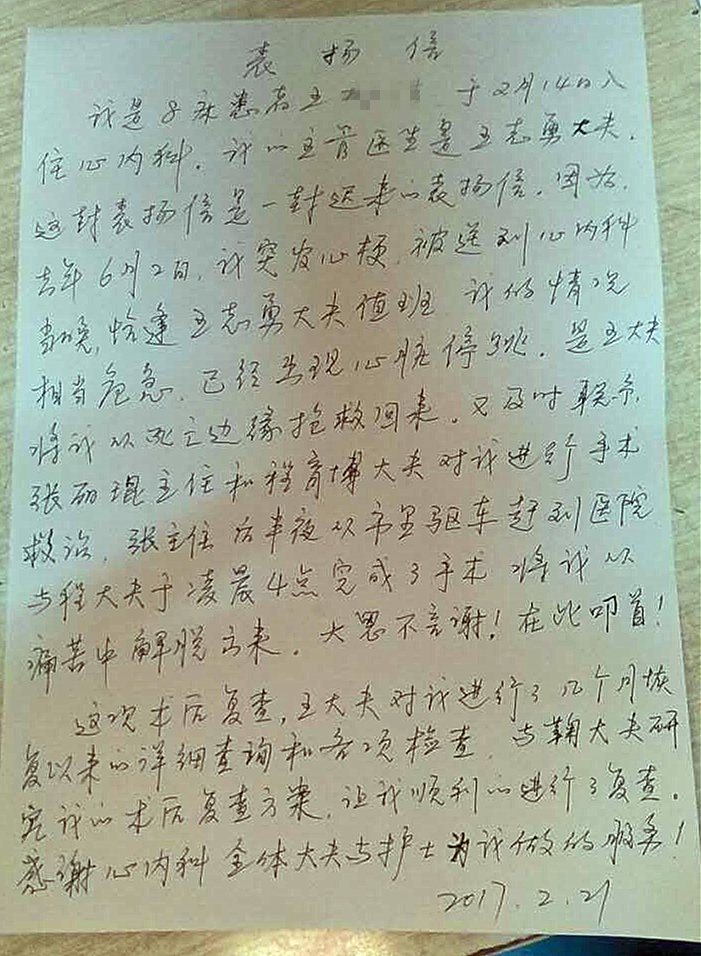 表扬信
我是8床患者王 于2月14日入
住心内科。我的主管医生是王志勇大夫。
这封表扬信是一封迟来的表扬信。因为，
去年6月2日，我突发心梗，被送到心内科
当晚，恰逢王志勇大夫值班 我的情况
相当危急，已经出现心脏停跳。是王大夫
将我从死亡边缘抢救回来。又及时联系
张丽琨主任和程育博大夫对我进行手术
救治，张主任后半夜从市里驱车赶到医院
与程大夫于凌晨4点完成了手术 将我从
痛苦中解脱出来。大恩不言谢！在此叩首！
这次术后复查，王大夫对我进行了几个月恢
复以来的详细查询和各项检查，与鞠大夫研
究我的术后复查方案，让我顺利的进行了复查。
感谢心内科全体大夫与护士为我做的服务！
2017.2.21